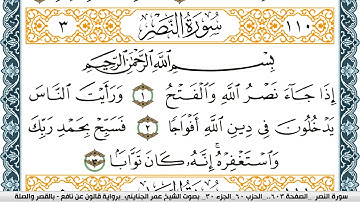 ٣ سُورَةُ النَّصْرِ ١١٠
بِسْمِ اللَّهِ الرَّحْمَٰنِ الرَّحِيمِ
إِذَا جَآءَ نَصْرُ اللَّهِ وَالْفَتْحُ ١ وَرَأَيْتَ النَّاسَ
يَدْخُلُونَ فِي دِينِ اللَّهِ أَفْوَاجًا ٢ فَسَبِّحْ بِحَمْدِ رَبِّكَ
وَاسْتَغْفِرْهُ إِنَّهُ كَانَ تَوَّابًا ٣
سورة النصر _ الصفحة ٦٠٣ .. الحزب ٦٠ _ الجزء ٣٠ _ بصوت الشيخ عمر الجنايني _ برواية قالون عن نافع - بالقصر والصلة